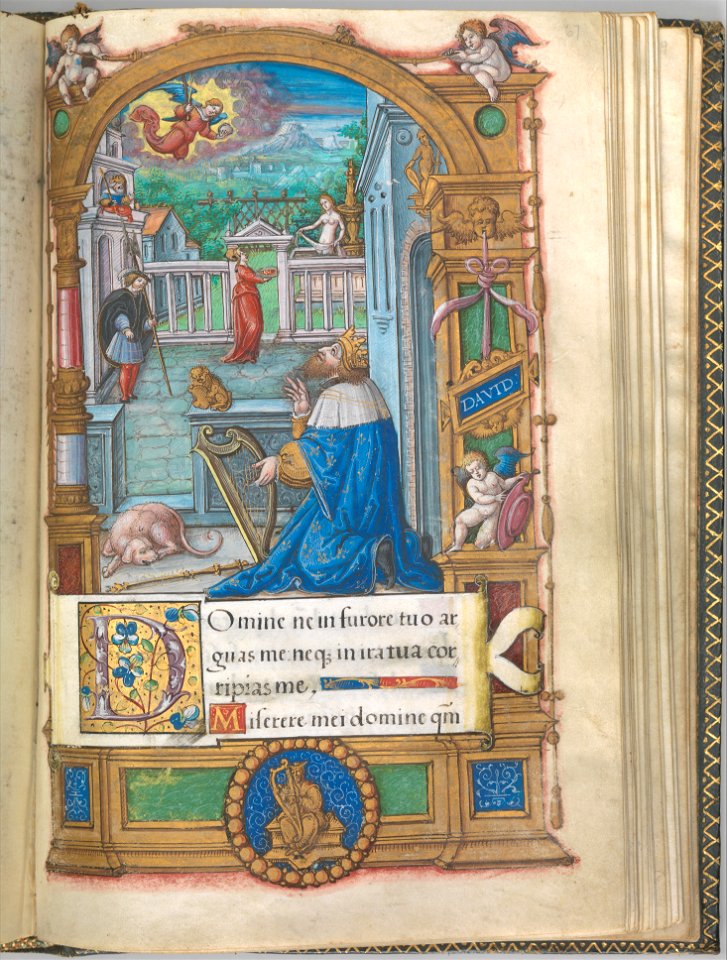 67
DAVID
Domine ne in furore tuo ar
guas me: neq; in ira tua cor
ripias me,
Miserere mei domine qm